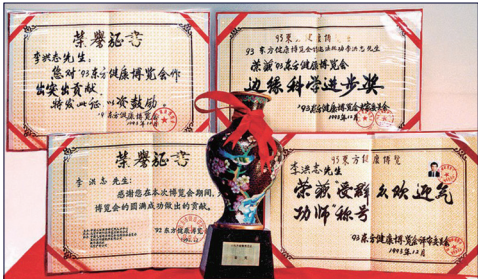 荣誉证书
李洪志先生:
您对'93东方健康博览会作
出突出贡献,
特发此证以资鼓励。
'93东方健康博览会
1993.12月
93东方健康博览会
荣获'93东方健康博览会
边缘科学进步奖
'93东方健康博览会评审委员会
1993.12月
荣誉证书
李洪志 先生:
感谢您在本次博览会期间,
博览会的圆满成功做出的贡献。
'92东方健康博览会
93东方健康博览
李洪志先生:
荣获"受群众欢迎气
功师"称号
'93东方健康博览会评审委员会
1993年12月